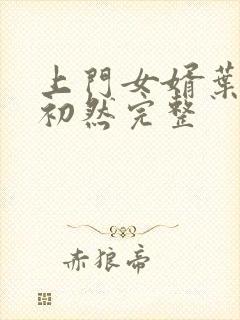 上門女婿葉
初然完整
赤狼帝